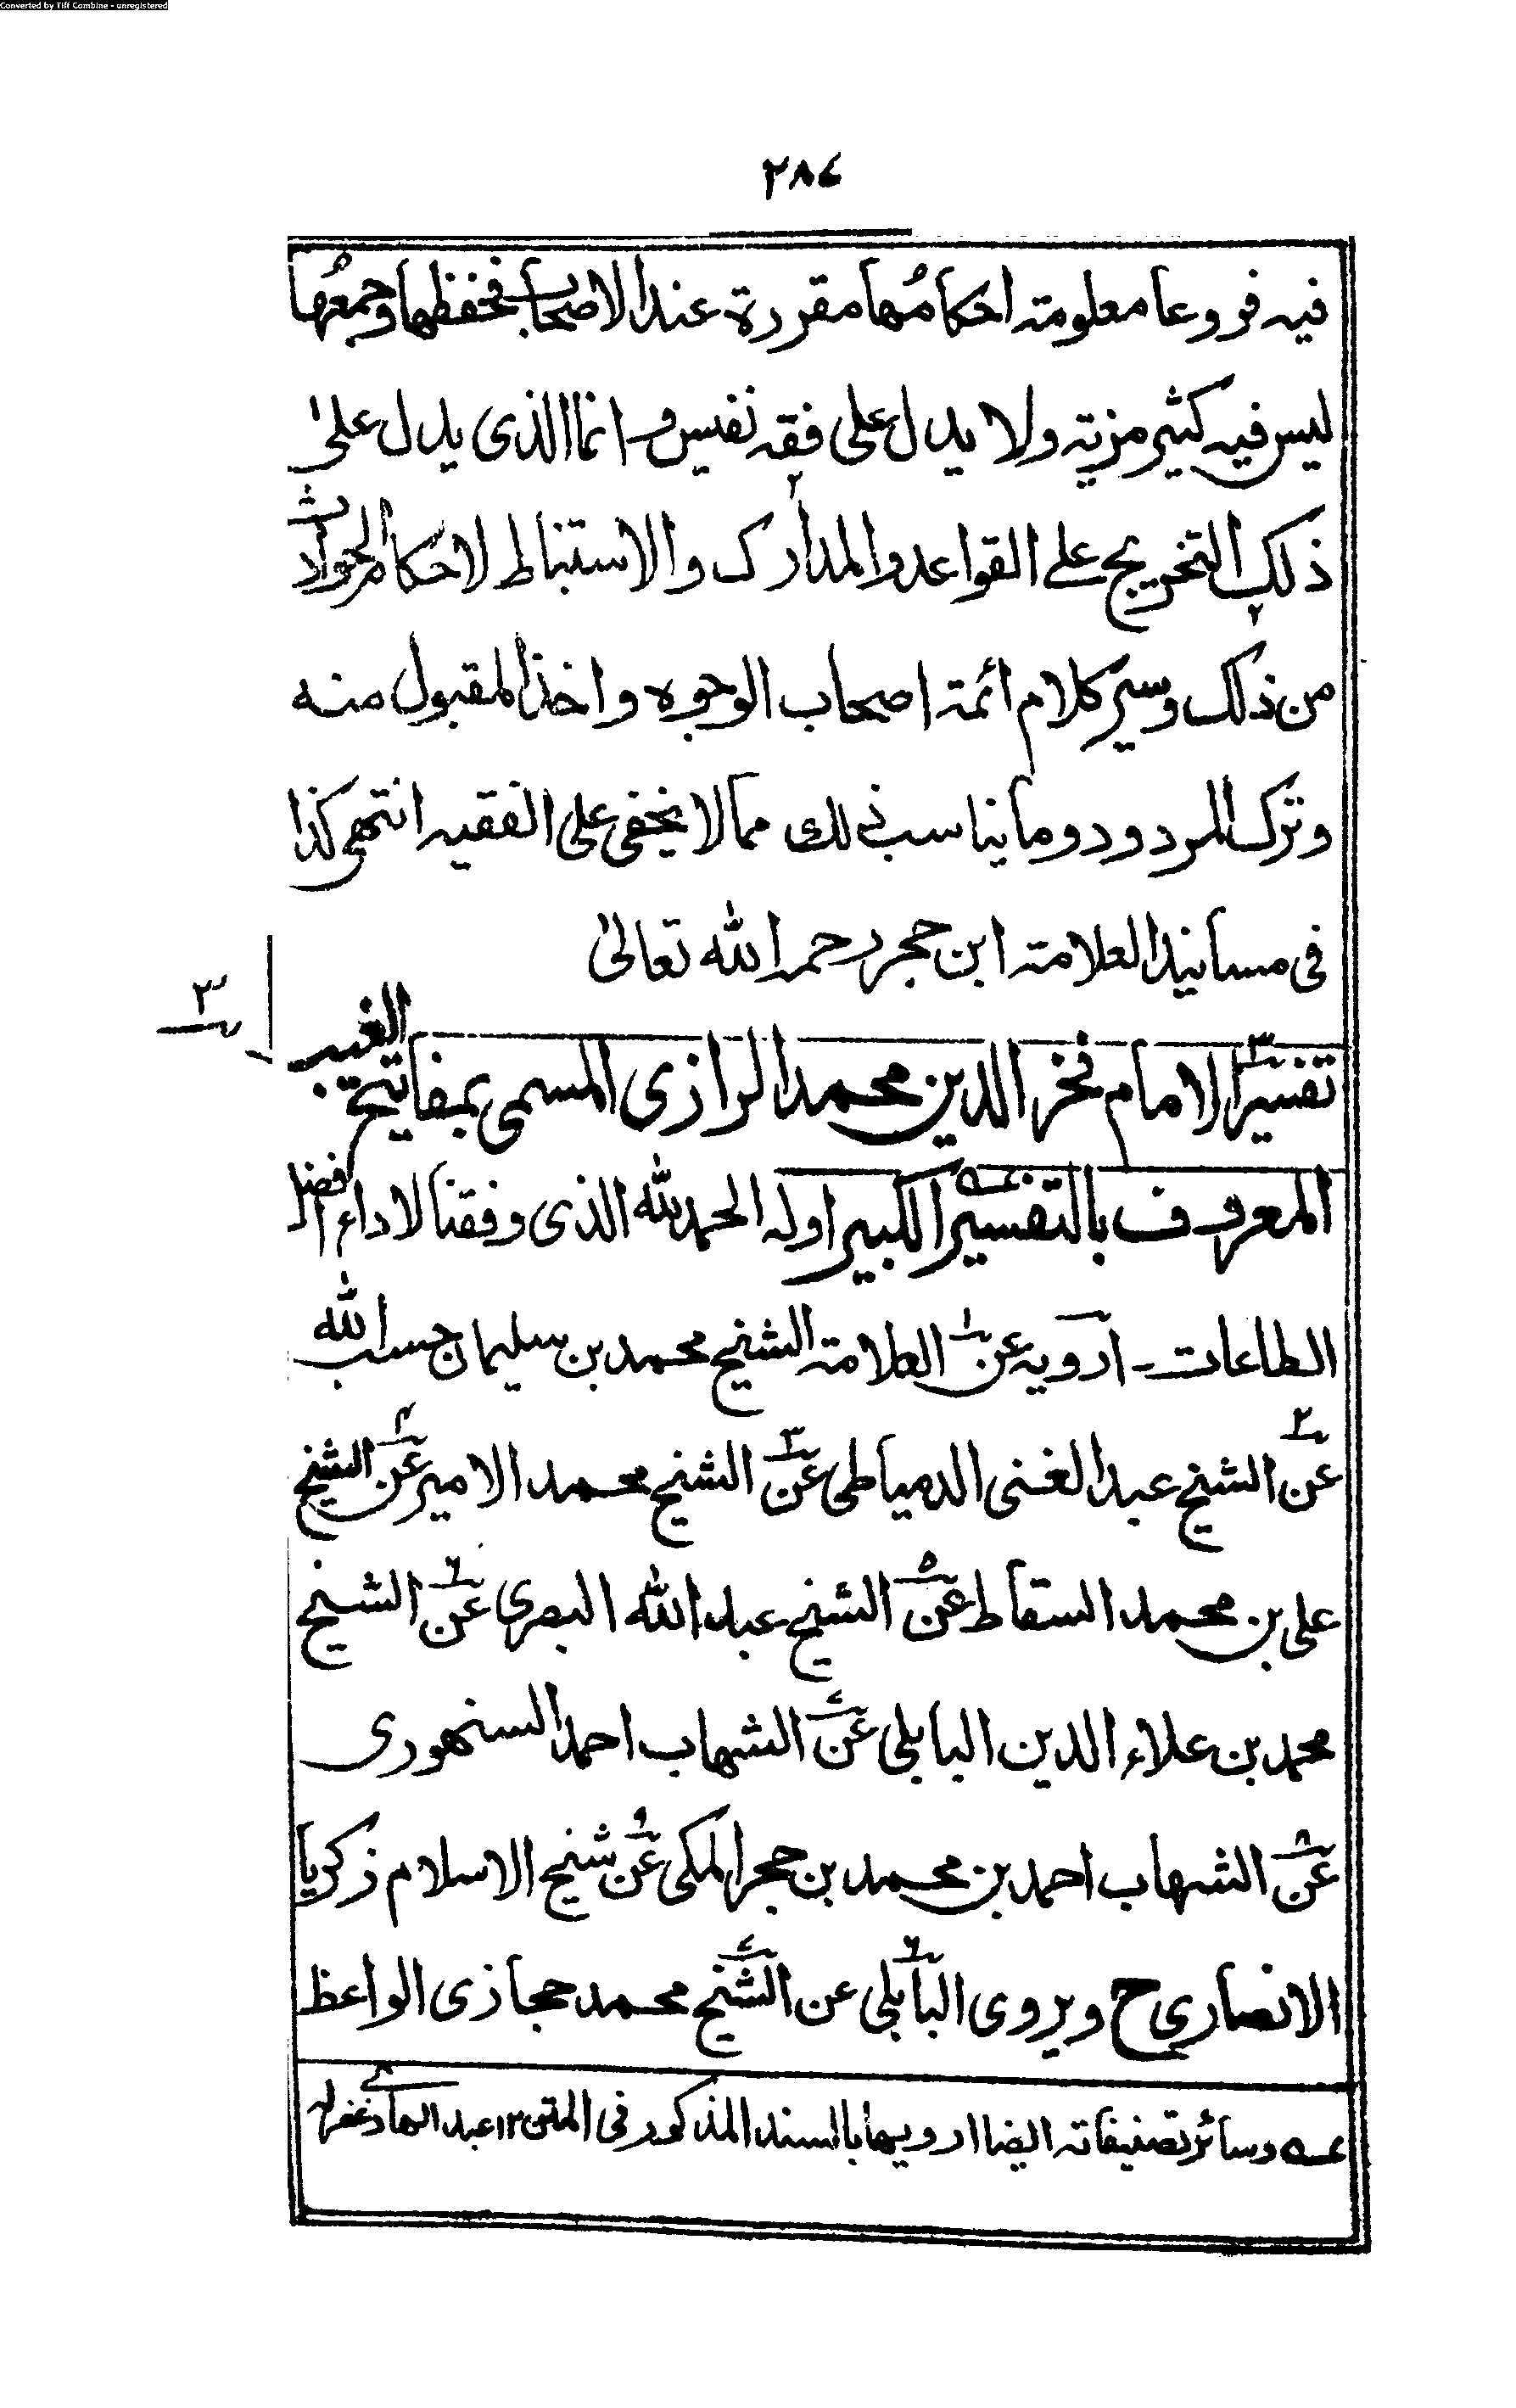 Converted by Tiff Combine - unregistered
٢٨٤
فيه فروعا معلومة احكامُها مقررة عند الاصحاب فحفظها وجمعُها
ليس فيه كثير مزية ولا يدل على فقه نفيس وانما الذى يدل على
ذلك التخريج على القواعد والمدارك والاستنباط لاحكام الحوادث
من ذلك وسير كلام ائمة اصحاب الوجوه واخذ المقبول منه
وترك المردود وما يناسب ذلك مما لا يخفى على الفقيه انتهى كذا
فى مسانيد العلامة ابن حجر رحمه الله تعالىٰ
٣
تفسير الامام فخر الدين محمد الرازى المسمى بمفاتيح الغيب
المعروف بالتفسير الكبير اوله الحمد لله الذى وفقنا لاداء افضل
الطاعات - ارويه عن العلامة الشيخ محمد بن سليمان حسب الله
عن الشيخ عبد الغنى الدمياطى عن الشيخ محمد الامير عن الشيخ
على بن محمد السقاط عن الشيخ عبد الله البصرى عن الشيخ
محمد بن علاء الدين البابلى عن الشهاب احمد السنهورى
عن الشهاب احمد بن محمد بن حجر المكى عن شيخ الاسلام زكريا
الانصارى ح ويروى البابلى عن الشيخ محمد حجازى الواعظ
عـه وسائر تصنيفاته ايضا ارويها بالسند المذكور فى المتن ١٢ عبد الهادى غفرله